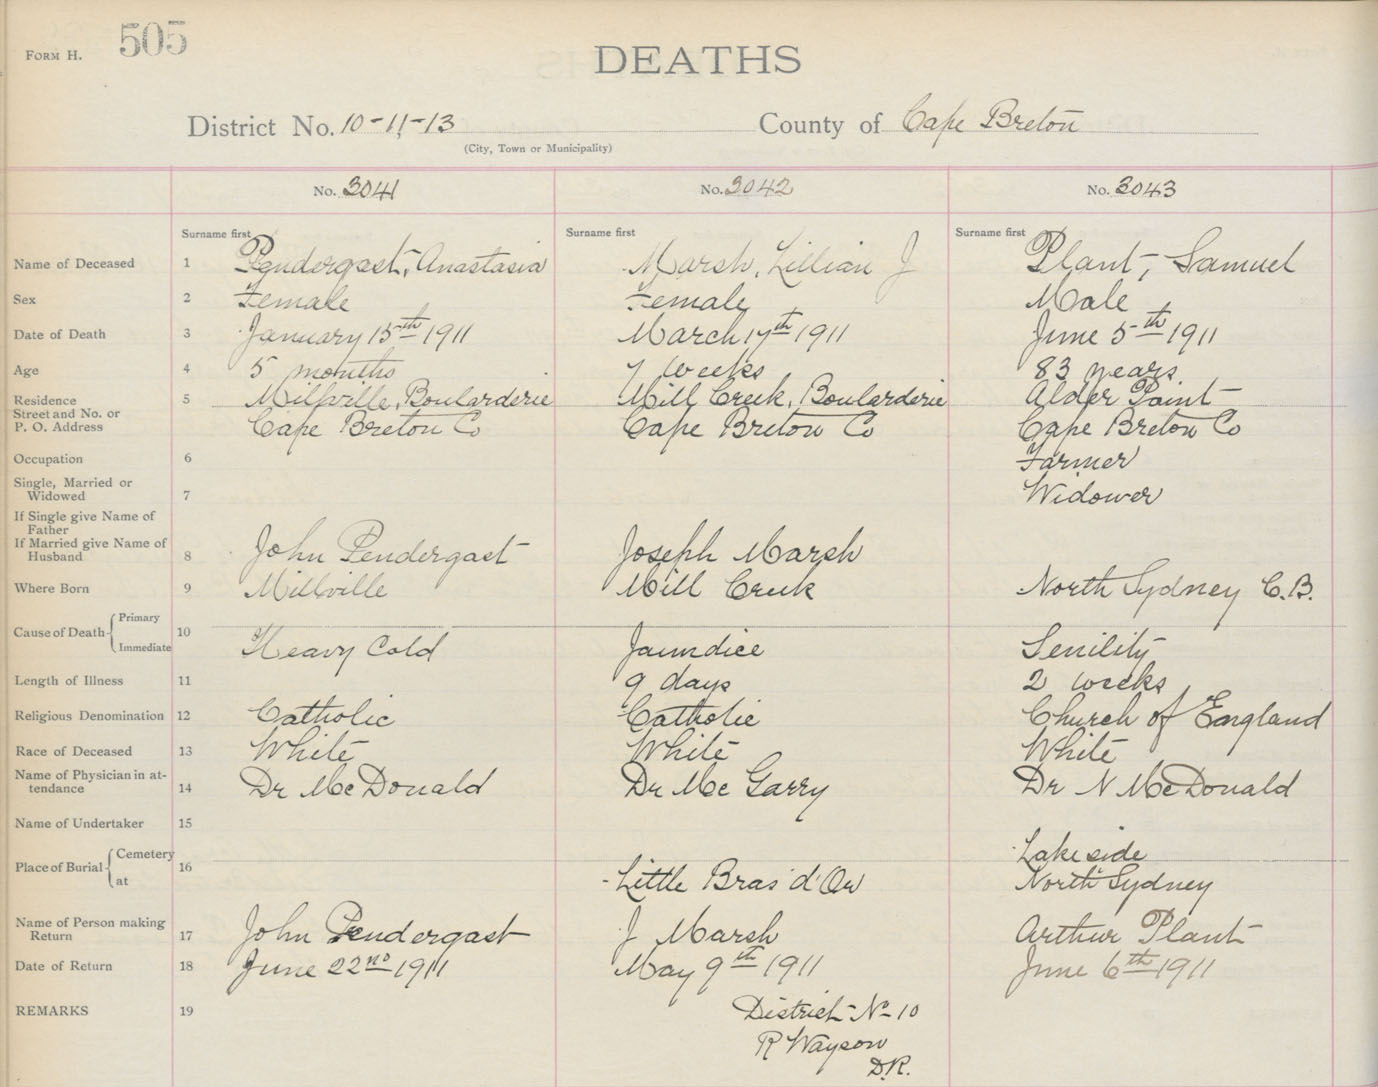 FORM H. 505
DEATHS
District No. 10-11-13 County of Cape Breton
(City, Town or Municipality)
No. 3041 No. 3042 No. 3043
Surname first Surname first Surname first
Name of Deceased 1 Pendergast, Anastasia Marsh, Lillian J Plant, Samuel
Sex 2 Female Female Male
Date of Death 3 January 15th 1911 March 17th 1911 June 5th 1911
Age 4 5 months 7 weeks 83 years
Residence 5 Millville, Boularderie Mill Creek, Boularderie Alder Point
Street and No. or
P. O. Address Cape Breton Co Cape Breton Co Cape Breton Co
Occupation 6 Farmer
Single, Married or
Widowed 7 Widower
If Single give Name of
Father
If Married give Name of
Husband 8 John Pendergast Joseph Marsh
Where Born 9 Millville Mill Creek North Sydney C.B.
Cause of Death Primary
10 Immediate Heavy Cold Jaundice Senility
Length of Illness 11 9 days 2 weeks
Religious Denomination 12 Catholic Catholic Church of England
Race of Deceased 13 White White White
Name of Physician in at-
tendance 14 Dr McDonald Dr McGarry Dr N McDonald
Name of Undertaker 15
Place of Burial Cemetery 16 Lakeside
at Little Bras d'Or North Sydney
Name of Person making
Return 17 John Pendergast J Marsh Arthur Plant
Date of Return 18 June 22nd 1911 May 9th 1911 June 6th 1911
REMARKS 19 District No 10
R Wayson
D.R.